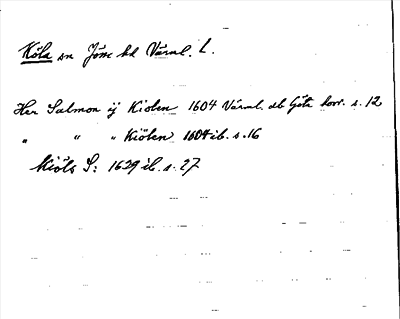 Köla sn Jösse hd Värml. L.
Her Salmon ij Kiolen 1604 Värml. ab Göta korr. s. 12
" " " Kiölen 1604 ib. s. 16
Kiöls S: 1629 ib. s. 27